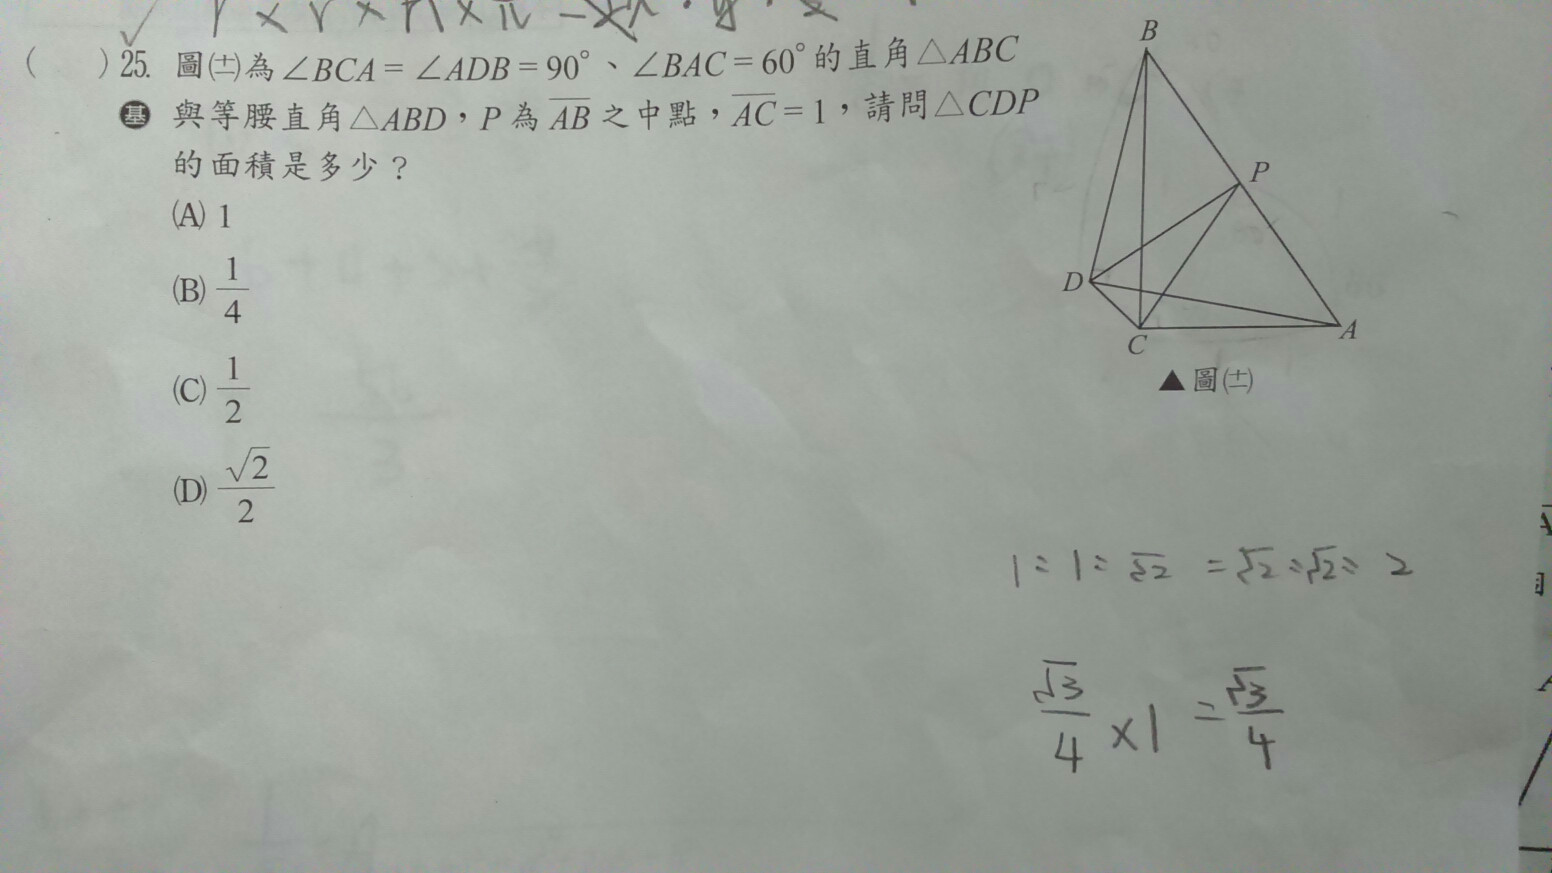 ( ) 25. 圖㈩為∠BCA=∠ADB=90°、∠BAC=60°的直角△ABC
基 與等腰直角△ABD,P為AB之中點,AC=1,請問△CDP
的面積是多少?
(A) 1
(B) 1/4
(C) 1/2
(D) √2/2
B
P
D
C
A
▲圖(十二)
1:1:√2=√2:√2:2
√3/4×1=√3/4